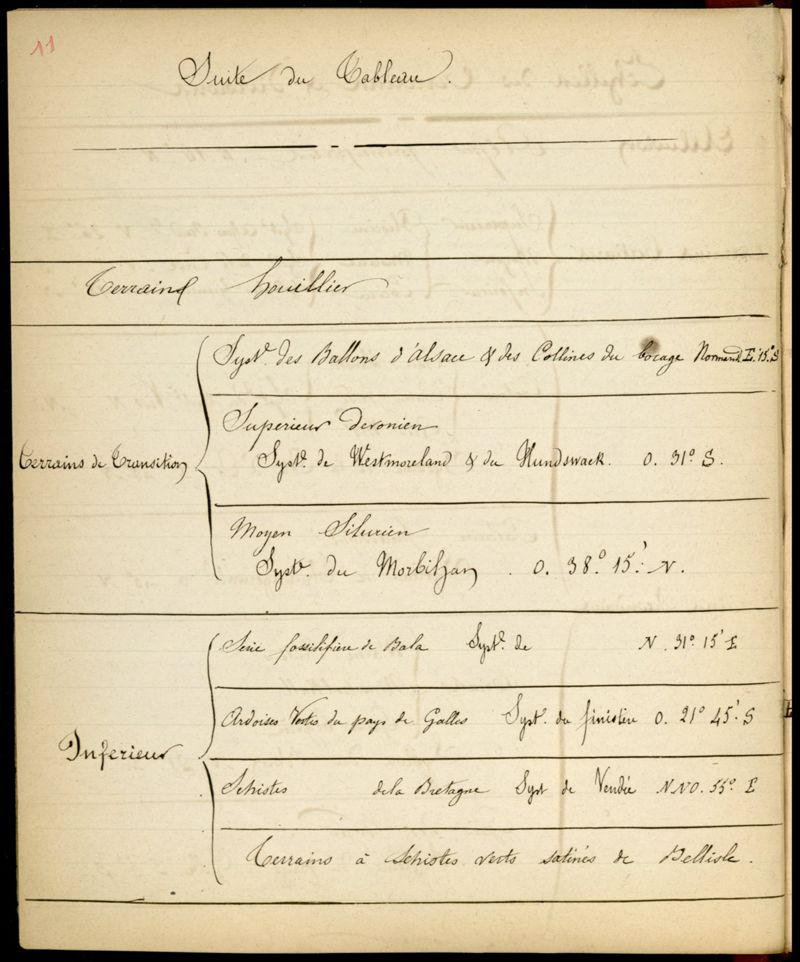 11
Suite du Tableau.
Terrains houillier
Terrains de Transition
Syste. des Ballons d'alsace & des Collines du bocage Normand. E. 15° S
Superieur devonien
Syste. de Westmoreland & du Hundswack. O. 31° S.
Moyen Silurien
Syste. du Morbihan. O. 38° 15'. N.
Inferieur
Serie fossilifere de Bala Syste. de N. 31° 15' E
Ardoises Vertes du pays de Galles Syste. du finistère O. 21° 45'. S
Schistes de la Bretagne Syst de Vendée N N O. 55° E
Terrains à Schistes verts satinés de Bellisle.